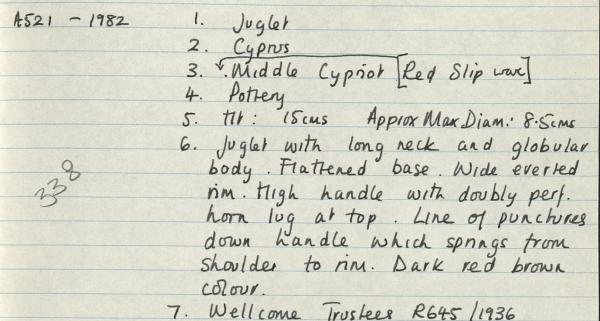 A521 - 1982
1. Juglet
2. Cyprus
3. Middle Cypriot [Red Slip ware]
4. Pottery
5. Ht: 15cms Approx Max Diam: 8.5cms
6. Juglet with long neck and globular
body. Flattened base. Wide everted
rim. High handle with doubly perf.
horn lug at top. Line of punctures
down handle which springs from
shoulder to rim. Dark red brown
colour.
338
7. Wellcome Trustees R645/1936